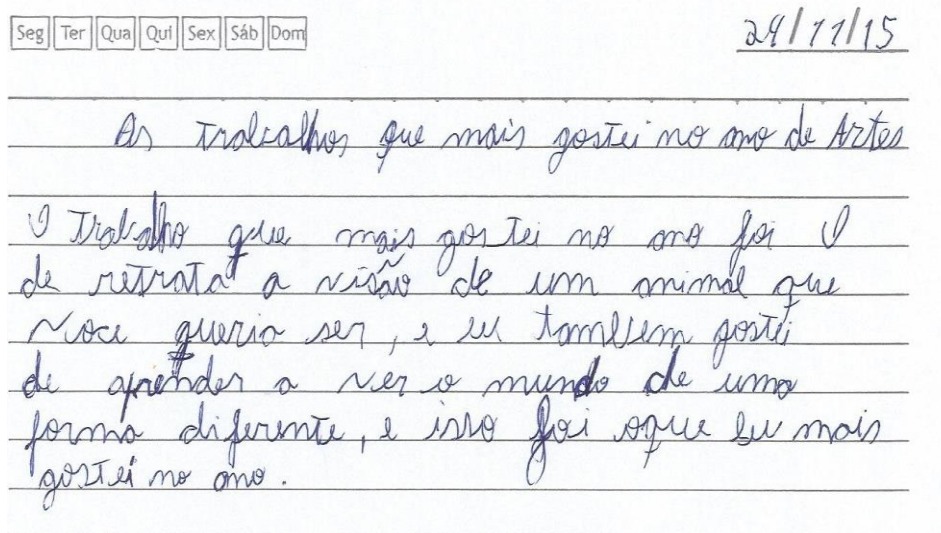 Seg Ter Qua Qui Sex Sáb Dom
24/11/15
As trabalhos que mais gostei no ano de Artes
O Trabalho que mais gostei no ano foi O
de retrata a visão de um animal que
voce queria ser, e eu tambem gostei
de aprender a ver o mundo de uma
forma diferente, e isso foi oque eu mais
gostei no ano.